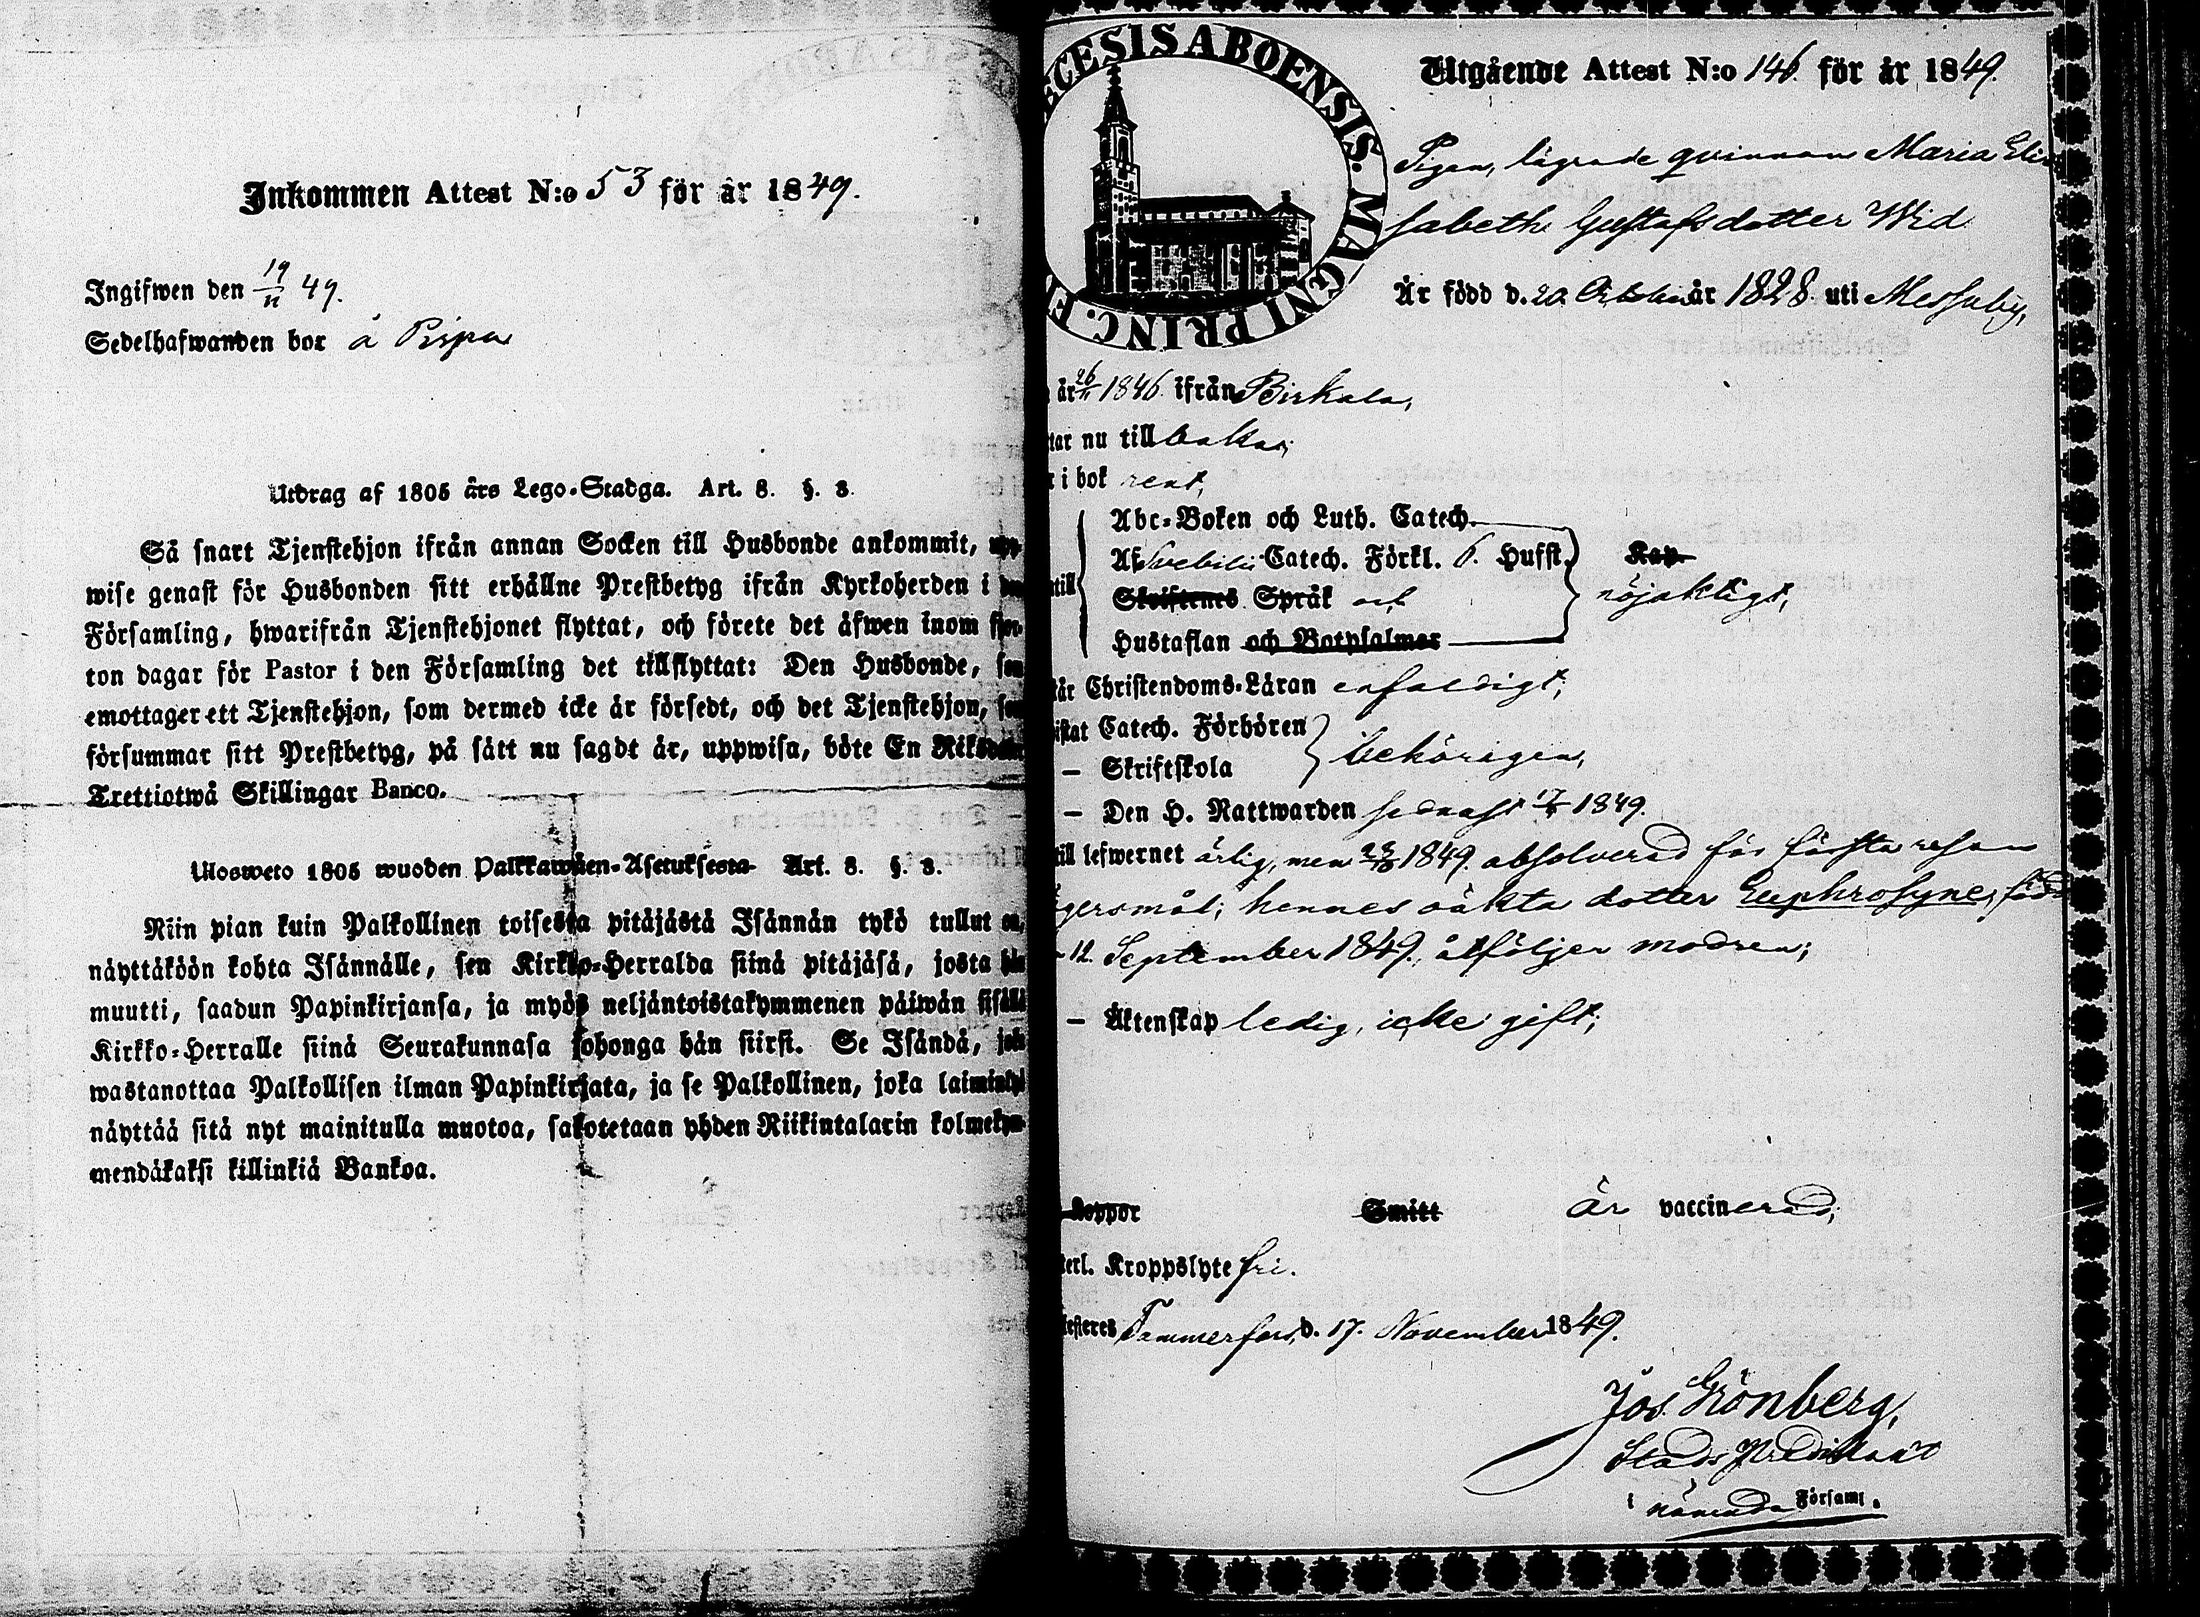 Inkommen Attest N:o 53 för år 1849.
Ingifwen den 19/11 49.
Sedelhafwanden bor å Pispa
Utdrag af 1805 års Lego-Stadga. Art. 8. §. 3.
Så snart Tjenstehjon ifrån annan Socken till Husbonde ankommit, upp-
wise genast för Husbonden sitt erhållne Prestbetyg ifrån Kyrkoherden i den
Församling, hwarifrån Tjenstehjonet flyttat, och förete det äfwen inom fjor-
ton dagar för Pastor i den Församling det tillflyttat: Den Husbonde, som
emottager ett Tjenstehjon, som dermed icke är försedt, och det Tjenstehjon, som
försummar sitt Prestbetyg, på sätt nu sagdt är, uppwisa, böte En Riksdaler
Trettiotwå Skillingar Banco.
Ulosweto 1805 wuoden Palkkawäen-Asetuksesta Art. 8. §. 3.
Niin pian kuin Palkollinen toisesta pitäjästä Isännän tykö tullut on,
näyttäköön kohta Isännälle, sen Kirkko-Herralda siinä pitäjäsä, josta hän
muutti, saadun Papinkirjansa, ja myös neljäntoistakymmenen päiwän sisällä
Kirkko-Herralle siinä Seurakunnasa johonga hän siirsi. Se Isändä, joka
wastanottaa Palkollisen ilman Papinkirjata, ja se Palkollinen, joka laiminlyö
näyttää sitä nyt mainitulla muotoa, sakotetaan yhden Riikintalarin kolmekym-
mendäkaksi killinkiä Bankoa.
ŒCESIS ABOENSIS. MAGNI PRINC. F
Utgående Attest N:o 146. för år 1849.
Pigan, lägrade qvinnan Maria Eli
sabeth Gustafsdotter Wid
Är född d. 20 Octob. år 1828 uti Messuby,
år 26/11 1846 ifrån Birkala,
tar nu till baka;
i bok rent,
Abc-Boken och Luth. Catech.
Af Svebilii Catech. Förkl. 6. Hufst.
Skriftenes Språk och
Hustaflan och Botpsalmer
till
Kap.
nöjaktigt,
tår Christendoms-Läran enfaldigt;
istat Catech. Förhören
– Skriftskola
behörigen,
– Den H. Nattwarden sednast 17/6 1849.
till lefwernet ärlig, men 1849 absolverad för första resan
lägersmål; hennes oäkta dotter Euphrosyne, född
12 September 1849, åtföljer modren;
– Äktenskap ledig, icke gift;
Koppor Smitt är vaccinerad;
terl. Kroppslyte fri.
testeres Tammerfors, d. 17. November 1849.
Jos. Grönberg,
Stads Predikant
i nämnda Församl.